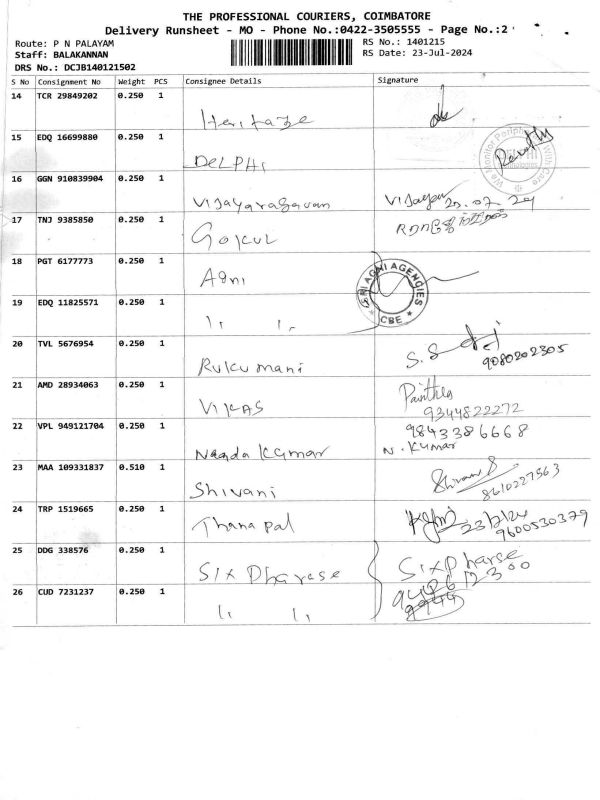 THE PROFESSIONAL COURIERS, COIMBATORE
Delivery Runsheet - MO - Phone No.:0422-3505555 - Page No.:2
Route: P N PALAYAM
RS No.: 1401215
Staff: BALAKANNAN
RS Date: 23-Jul-2024
DRS No.: DCJB140121502
S No Consignment No Weight PCS Consignee Details Signature
14 TCR 29849202 0.250 1
Heritage
15 EDQ 16699880 0.250 1
DELPHI
Revathy
We Monitor Periph With Care
16 GGN 910839904 0.250 1
Vijayaragavan Vijayan 23.07.24
17 TNJ 9385850 0.250 1
Gokul
18 PGT 6177773 0.250 1
Agni
SRI AGNI AGENCIES
* CBE *
19 EDQ 11825571 0.250 1
" "
20 TVL 5676954 0.250 1
Rukumani S.S
9080202305
21 AMD 28934063 0.250 1
VIKAS
9344822272
22 VPL 949121704 0.250 1
9843386668
Nanda Kumar N. Kumar
23 MAA 109331837 0.510 1
Shivani
8610227563
24 TRP 1519665 0.250 1
Thanapal 23/7/24
9600530379
25 DDG 338576 0.250 1
Six Pharese Sixpharse
26 CUD 7231237 0.250 1
" "